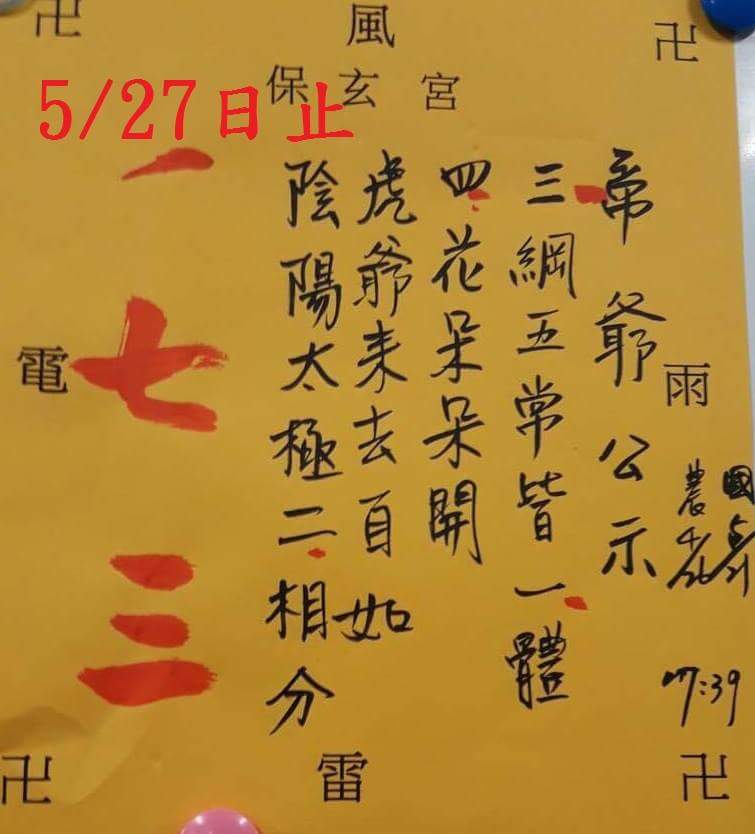 卍
風
卍
保玄宮
5/27日止
雨
國 5/21
農 4/26
17:39
帝爺公示
三綱五常皆一體
四花呆呆開
虎爺来去自如
陰陽太極二相分
一七三
電
卍
雷
卍